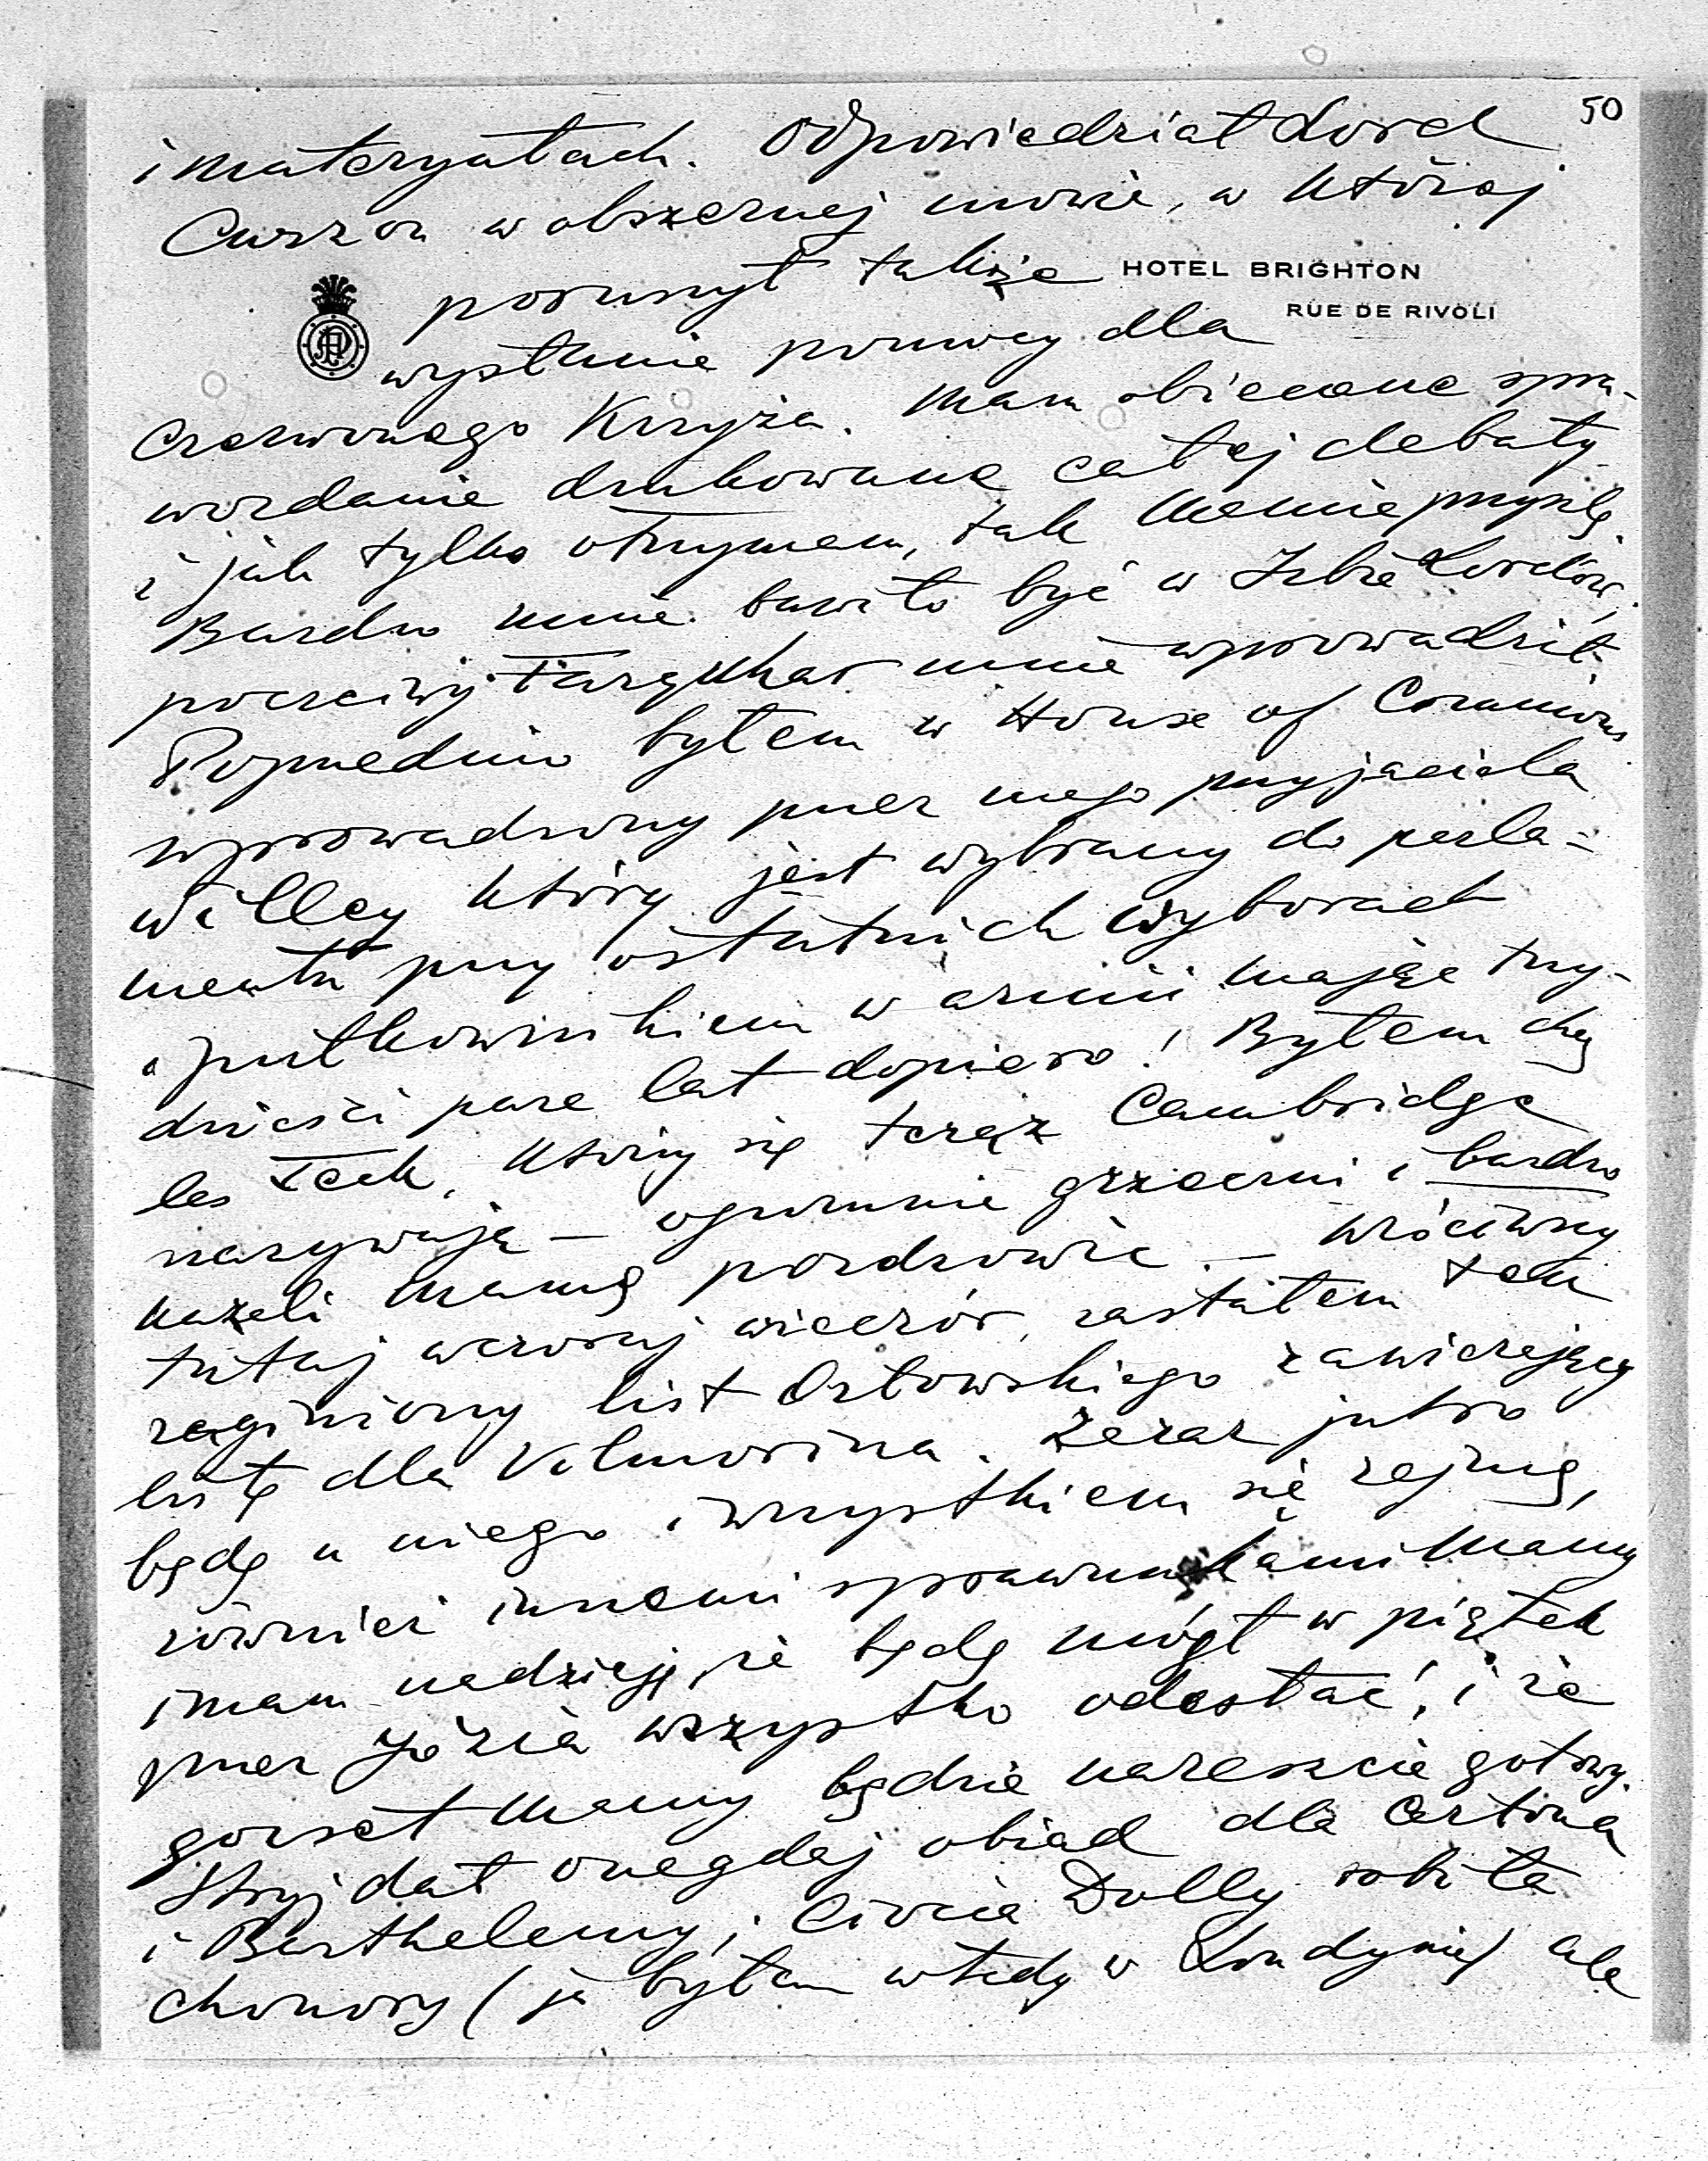 50
i materyałach. Odpowiedział Lord
Curzon w obszernej mowie, w której
poruszył także
HOTEL BRIGHTON
RUE DE RIVOLI
wysłanie pomocy dla
Czerwonego Krzyża. Mam obiecane spra-
wozdanie drukowane całej debaty
i jak tylko otrzymam, tak Mamie przyszlę.
Bardzo mnie bawiło być w Izbie Lordów,
poczciwy Farquhar mnie wprowadził.
Poprzednio byłem w House of Commons
wprowadzony przez mego przyjaciela
Willey który jest wybrany do parla-
mentu przy ostatnich wyborach
a pułkownikiem w armii mając trzy-
dzieści parę lat dopiero! Byłem chez
les Teck, którzy się teraz Cambridge
nazywają — ogromnie grzeczni i bardzo
kazali Mamę pozdrowić. — Wróciwszy
tutaj wczoraj wieczór, zastałem ten
zaginiony list Orłowskiego zawierający
listę dla Vilmorina. Zaraz jutro
będę u niego i wszystkiem się zajmę,
również innemi sprawunkami Mamy
i mam nadzieję, że będę mógł w piątek
przez Józia wszystko odesłać, i że
gorset Mamy będzie nareszcie gotowy.
Stryj dał onegdaj obiad dla
i Barthelemy, Ciocia Dolly robiła
chonory (ja byłem wtedy w Londynie) ale